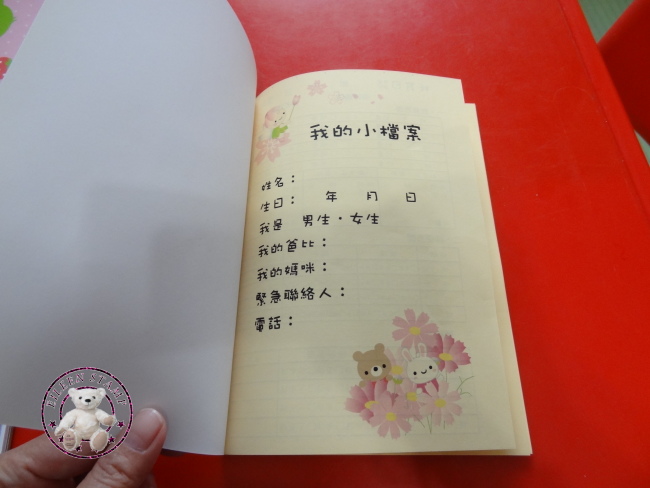 我的小檔案
姓名：
生日：　年　月　日
我是　男生・女生
我的爸比：
我的媽咪：
緊急聯絡人：
電話：